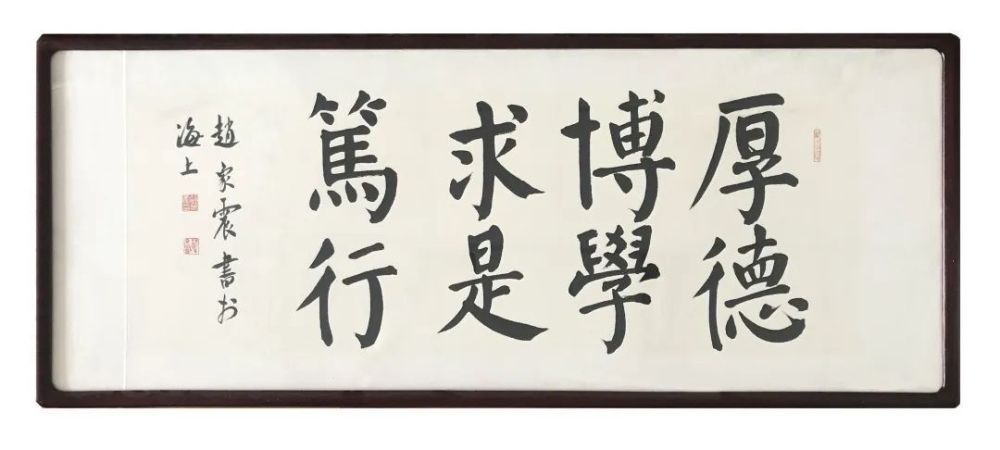 厚德
博學
求是
篤行
趙家震書於
海上